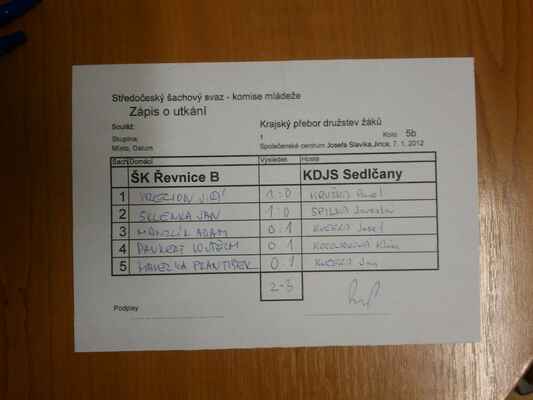 Středočeský šachový svaz - komise mládeže
Zápis o utkání
Soutěž: Krajský přebor družstev žáků
Skupina: 1 Kolo: 5b
Místo, Datum Společenské centrum Josefa Slavíka,Jince, 7. 1. 2012
Šach Domácí Výsledek Hosté
ŠK Řevnice B KDJS Sedlčany
1 JIŘÍ 1:0 Pavel
2 SKLENKA JAN 1:0 SPILKA Jaroslav
3 ADAM 0:1 KUČERA Josef
4 VOJTĚCH 0:1
5 FRANTIŠEK 0:1 KUČERA Jan
2-3
Podpisy